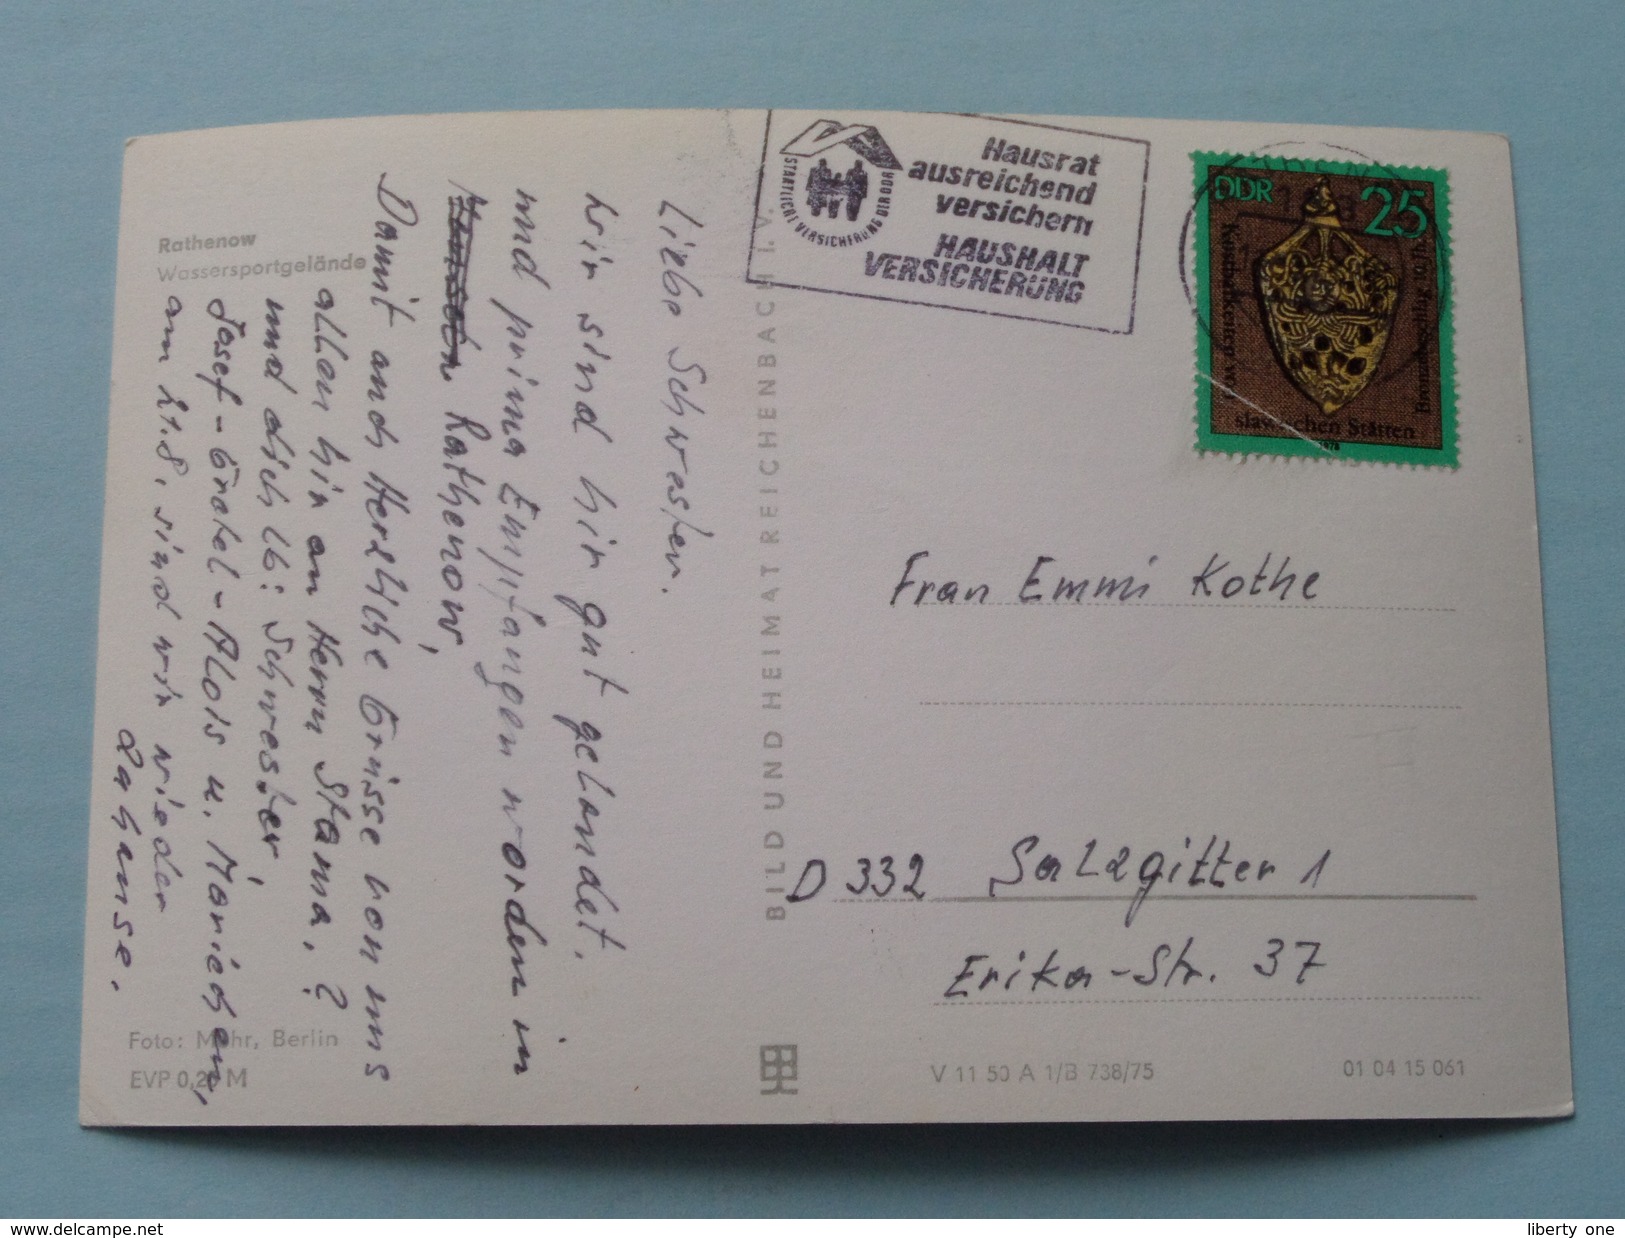 Rathenow
Wassersportgelände
Liebe Schwester.
Wir sind hir gut gelandet.
und prima Empfangen worden in
Rathenow,
Damit auch Herzliche Grüsse von uns
allen hir an Herrn Stanna,?
und dich lb: Schwester.
Josef - Gretel - Alois u. Mariechen,
am 21.8. sind wir wieder
zahause.
Foto: Mohr, Berlin
EVP 0,20 M
BILD UND HEIMAT REICHENBACH I. V.
STAATLICHE VERSICHERUNG DER DDR
Hausrat
ausreichend
versichern
HAUSHALT
VERSICHERUNG
DDR 25
Kostbarkeiten von
slawischen Stätten
1978
Frau Emmi Kothe
D 332 Salzgitter 1
Erika-Str. 37
V 11 50 A 1/B 738/75
01 04 15 061
liberty one